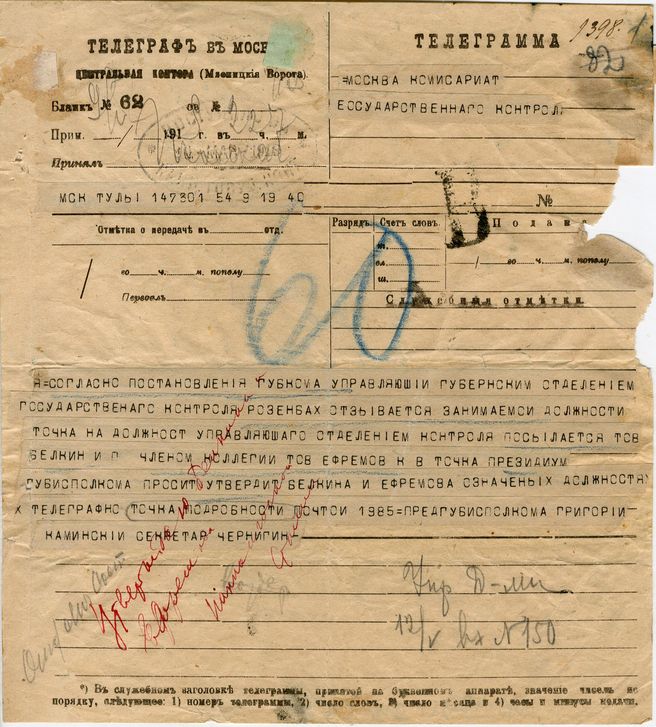 ТЕЛЕГРАФЪ ВЪ МОСК
ЦЕНТРАЛЬНАЯ КОНТОРА (Мясницкія Ворота).
Бланкъ № 62 съ № 2227
Прин. 191 г. въ ч. м.
Принялъ
МСК ТУЛЫ 147301 54 9 19 40
Отмѣтка о передачѣ въ отд.
/ го ч. м. пополу
Передалъ
ТЕЛЕГРАММА
1398.
82
=МОСКВА КОМИСАРИАТ
ГОСУДАРСТВЕННАГО КОНТРОЛ
№
Разрядъ. Счетъ словъ. Подана
/ го ч. м. пополу
Служебныя отмѣтки.
60
Я=СОГЛАСНО ПОСТАНОВЛЕНІЯ ГУБКОМА УПРАВЛЯЮШІИ ГУБЕРНСКИМ ОТДЕЛЕНІЕМ
ГОСУДАРСТВЕНАГО КОНТРОЛЯ РОЗЕНБАХ ОТЗЫВАЕТСЯ ЗАНИМАЕМОИ ДОЛЖНОСТИ
ТОЧКА НА ДОЛЖНОСТ УПРАВЛЯЮШАГО ОТДЕЛЕНІЕМ КОНТРОЛЯ ПОСЫЛАЕТСЯ ТОВ
БЕЛКИН И П ЧЛЕНОМ КОЛЛЕГИИ ТОВ ЕФРЕМОВ К В ТОЧКА ПРЕЗИДИУМ
ГУБИСПОЛКОМА ПРОСИТ УТВЕРДИТ БЕЛКИНА И ЕФРЕМОВА ОЗНАЧЕНЫХ ДОЛЖНОСТЯ
Х ТЕЛЕГРАФНО ТОЧКА ПОДРОБНОСТИ ПОЧТОИ 1985=ПРЕДГУБИСПОЛКОМА ГРИГОРІИ
КАМИНСКІИ СЕКРЕТАР ЧЕРНИГИН-
Упр Д-ми
12/V вх N 150
*) Въ служебномъ заголовкѣ телеграммы, принятой на буквенномъ аппаратѣ, значеніе чиселъ по
порядку, слѣдующее: 1) номеръ телеграммы, 2) число словъ, 3) число мѣсяца и 4) часы и минуты подачи.